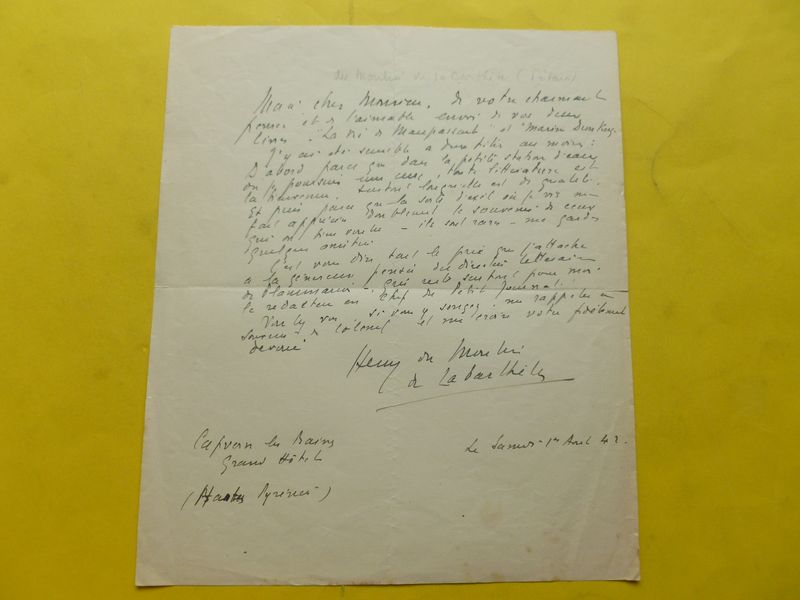 du Moulin de Labarthète (Pétain)
Merci cher Monsieur, de votre charmante
pensée et de l'aimable envoi de vos deux
livres "La vie de Maupassant" et
J'y ai été sensible à double titre au moins :
D'abord parce que dans la petite station d'eaux
où je poursuis une cure, toute littérature est
la bienvenue. Surtout lorsqu'elle est de qualité.
Et puis parce que la sorte d'exil où je vis me
fait apprécier doublement le souvenir de ceux
qui ont bien voulu - ils sont rares - me garder
quelque amitié.
C'est vous dire tout le prix que j'attache
à la généreuse pensée du directeur littéraire
de Flammarion - qui reste surtout pour moi
le rédacteur en chef du Petit Journal.
Veuillez, si vous y songez, me rappeler au
souvenir du Colonel et me croire votre fidèlement
dévoué.
Henry du Moulin
de Labarthète
Capvern les Bains
Grand Hôtel
(Hautes Pyrénées)
Le Samedi 1er Août 42.